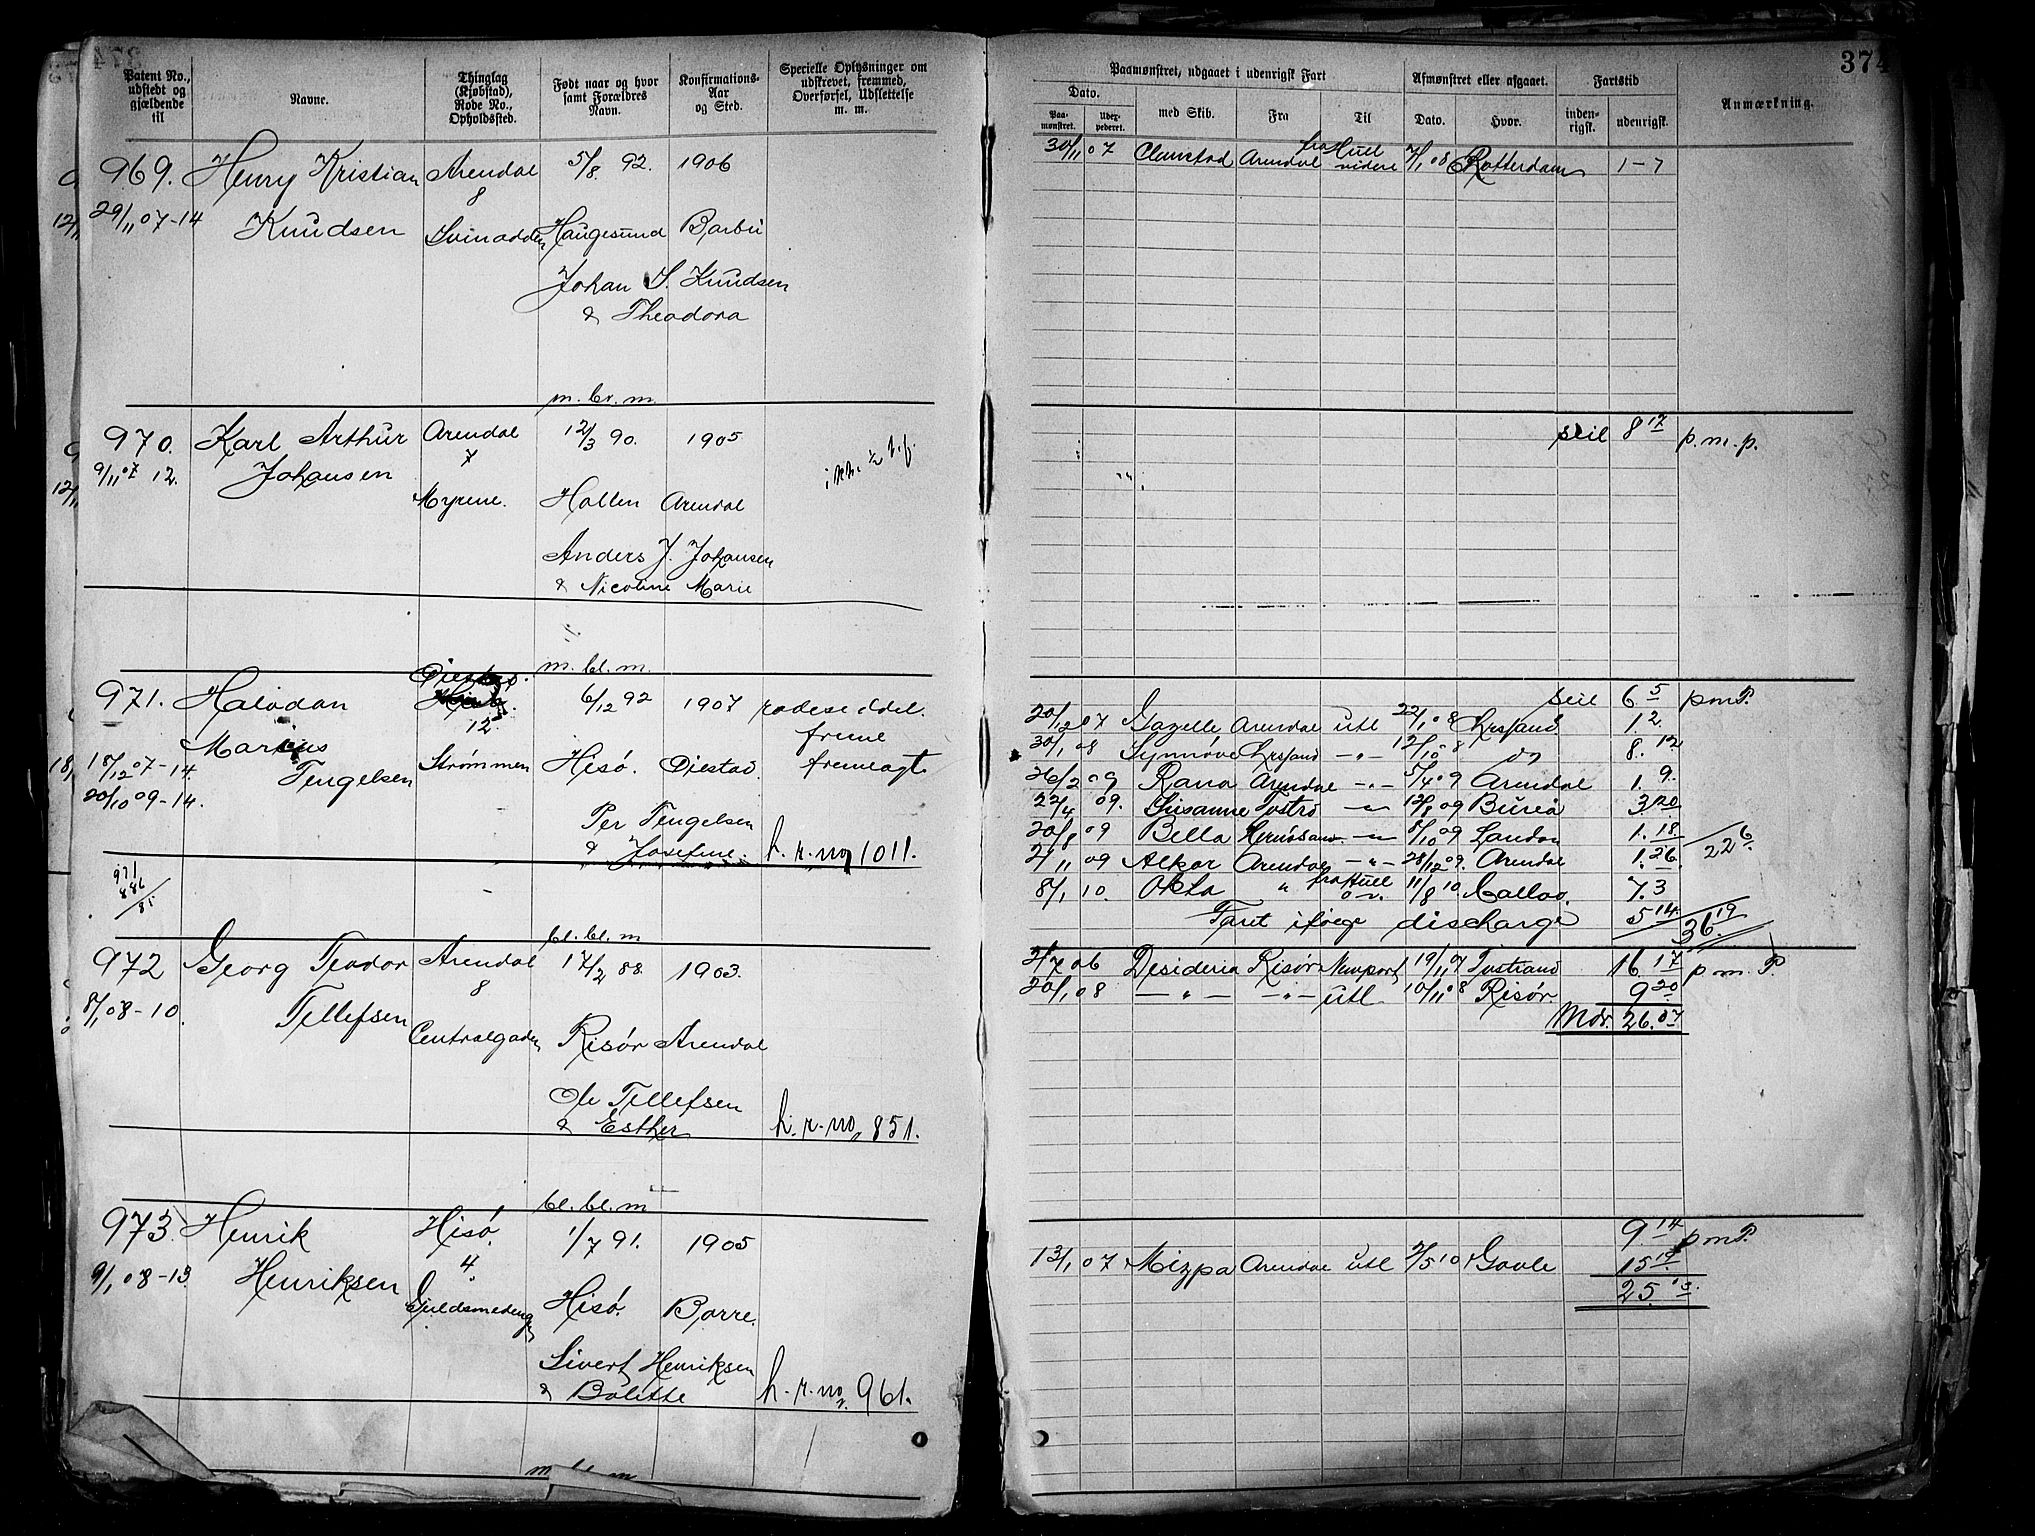 374
Patent No., udstedt og gjældende til
Navne.
Thinglag (Kjøbstad), Rode No., Opholdsted.
Født naar og hvor samt Forældres Navn.
Konfirmations-Aar og Sted.
Specielle Oplysninger om udskrevet, fremmed, Overførsel, Udslettelse m. m.
Paamønstret, udgaaet i udenrigsk Fart
Afmønstret eller afgaaet.
Fartstid
Anmærkning.
Dato.
Paa-mønstret.
med Skib.
Fra
Til
Dato.
Hvor.
inden-rigsk.
udenrigsk.
969. Henry Kristian Arendal 5/8. 92. 1906
8
29/11 07-14 Knudsen Haugesund Barbu
Johan S. Knudsen
& Theodora
30/11 07 Arendal fra Hull videre 7/1 08 Rotterdam 1-7
m. br. m.
970. Karl Arthur Arendal 12/3 90. 1905
7
9/11 07 12. Johansen
Myrene. Arendal
Anders J. Johansen
& Nicoline Marie
seil 8 17 p.m.p.
m. bl. m.
971. Halvdan Øiestad. 6/12 92 1907
12
Marius
18/12 07-14. Tengelsen Strømmen Hisø. Øiestad.
20/10 09-14.
Per Tengelsen
& Josefine. h. r. no 1011.
971
886
85
seil 6 5 pmP.
20/12 07 Gazelle Arendal utl 22/1 08 Krsand 1. 2.
30/1 08 Synnøve Krsand -"- 12/10 08 8. 12
26/2 09 Rana Arendal -"- 5/4 09 Arendal 1. 9.
22/4 09. Susanne -"- 12/8 09 Bureå 3. 20
20/8 09 Bella Hernösand -"- 8/10 09 London 1. 18
22 6
2/11 09 Alkor Arendal -"- 28/12 09. Arendal 1. 26.
8/1 10. Okta " fra Hull 11/8 10 Callao. 7. 3
Faret ifølge discharge 5 14
36. 19
bl. bl. m
972 Georg Teodor Arendal 17/2 88. 1903.
8
8/1 08-10. Tellefsen Centralgaden Risør Arendal
Ole Tellefsen
& Esther h. r. no, 851.
2/7 06 Desideria Risør Newport 19/11 07 16. 17 p.m.P.
20/1 08 -"- -"- utl. 10/11 08 Risør 9 20
Mdr. 26. 07
bl. bl. m
973. Henrik Hisø. 1/7 91. 1905
4
9/1 08-13. Henriksen Guldsmedeng Hisø. Borre.
Sivert Henriksen
& Bolette h. r. no. 961.
9. 14 pmP.
13/1 07 Mizpa Arendal utl Gavle 15
25.